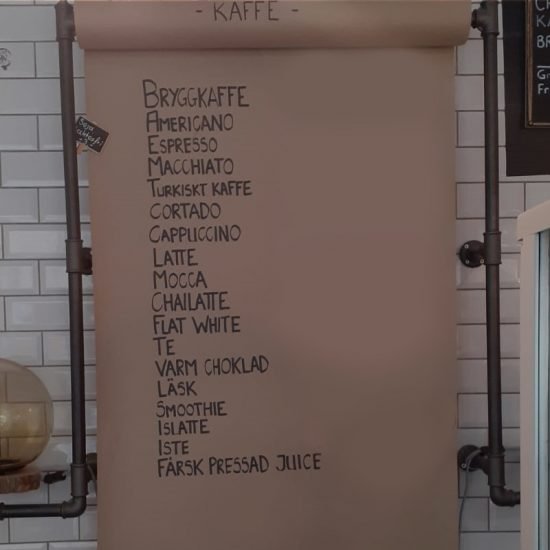 - KAFFE -
BRYGGKAFFE
AMERICANO
ESPRESSO
MACCHIATO
TURKISKT KAFFE
CORTADO
CAPPUCCINO
LATTE
MOCCA
CHAILATTE
FLAT WHITE
TE
VARM CHOKLAD
LÄSK
SMOOTHIE
ISLATTE
ISTE
FÄRSK PRESSAD JUICE